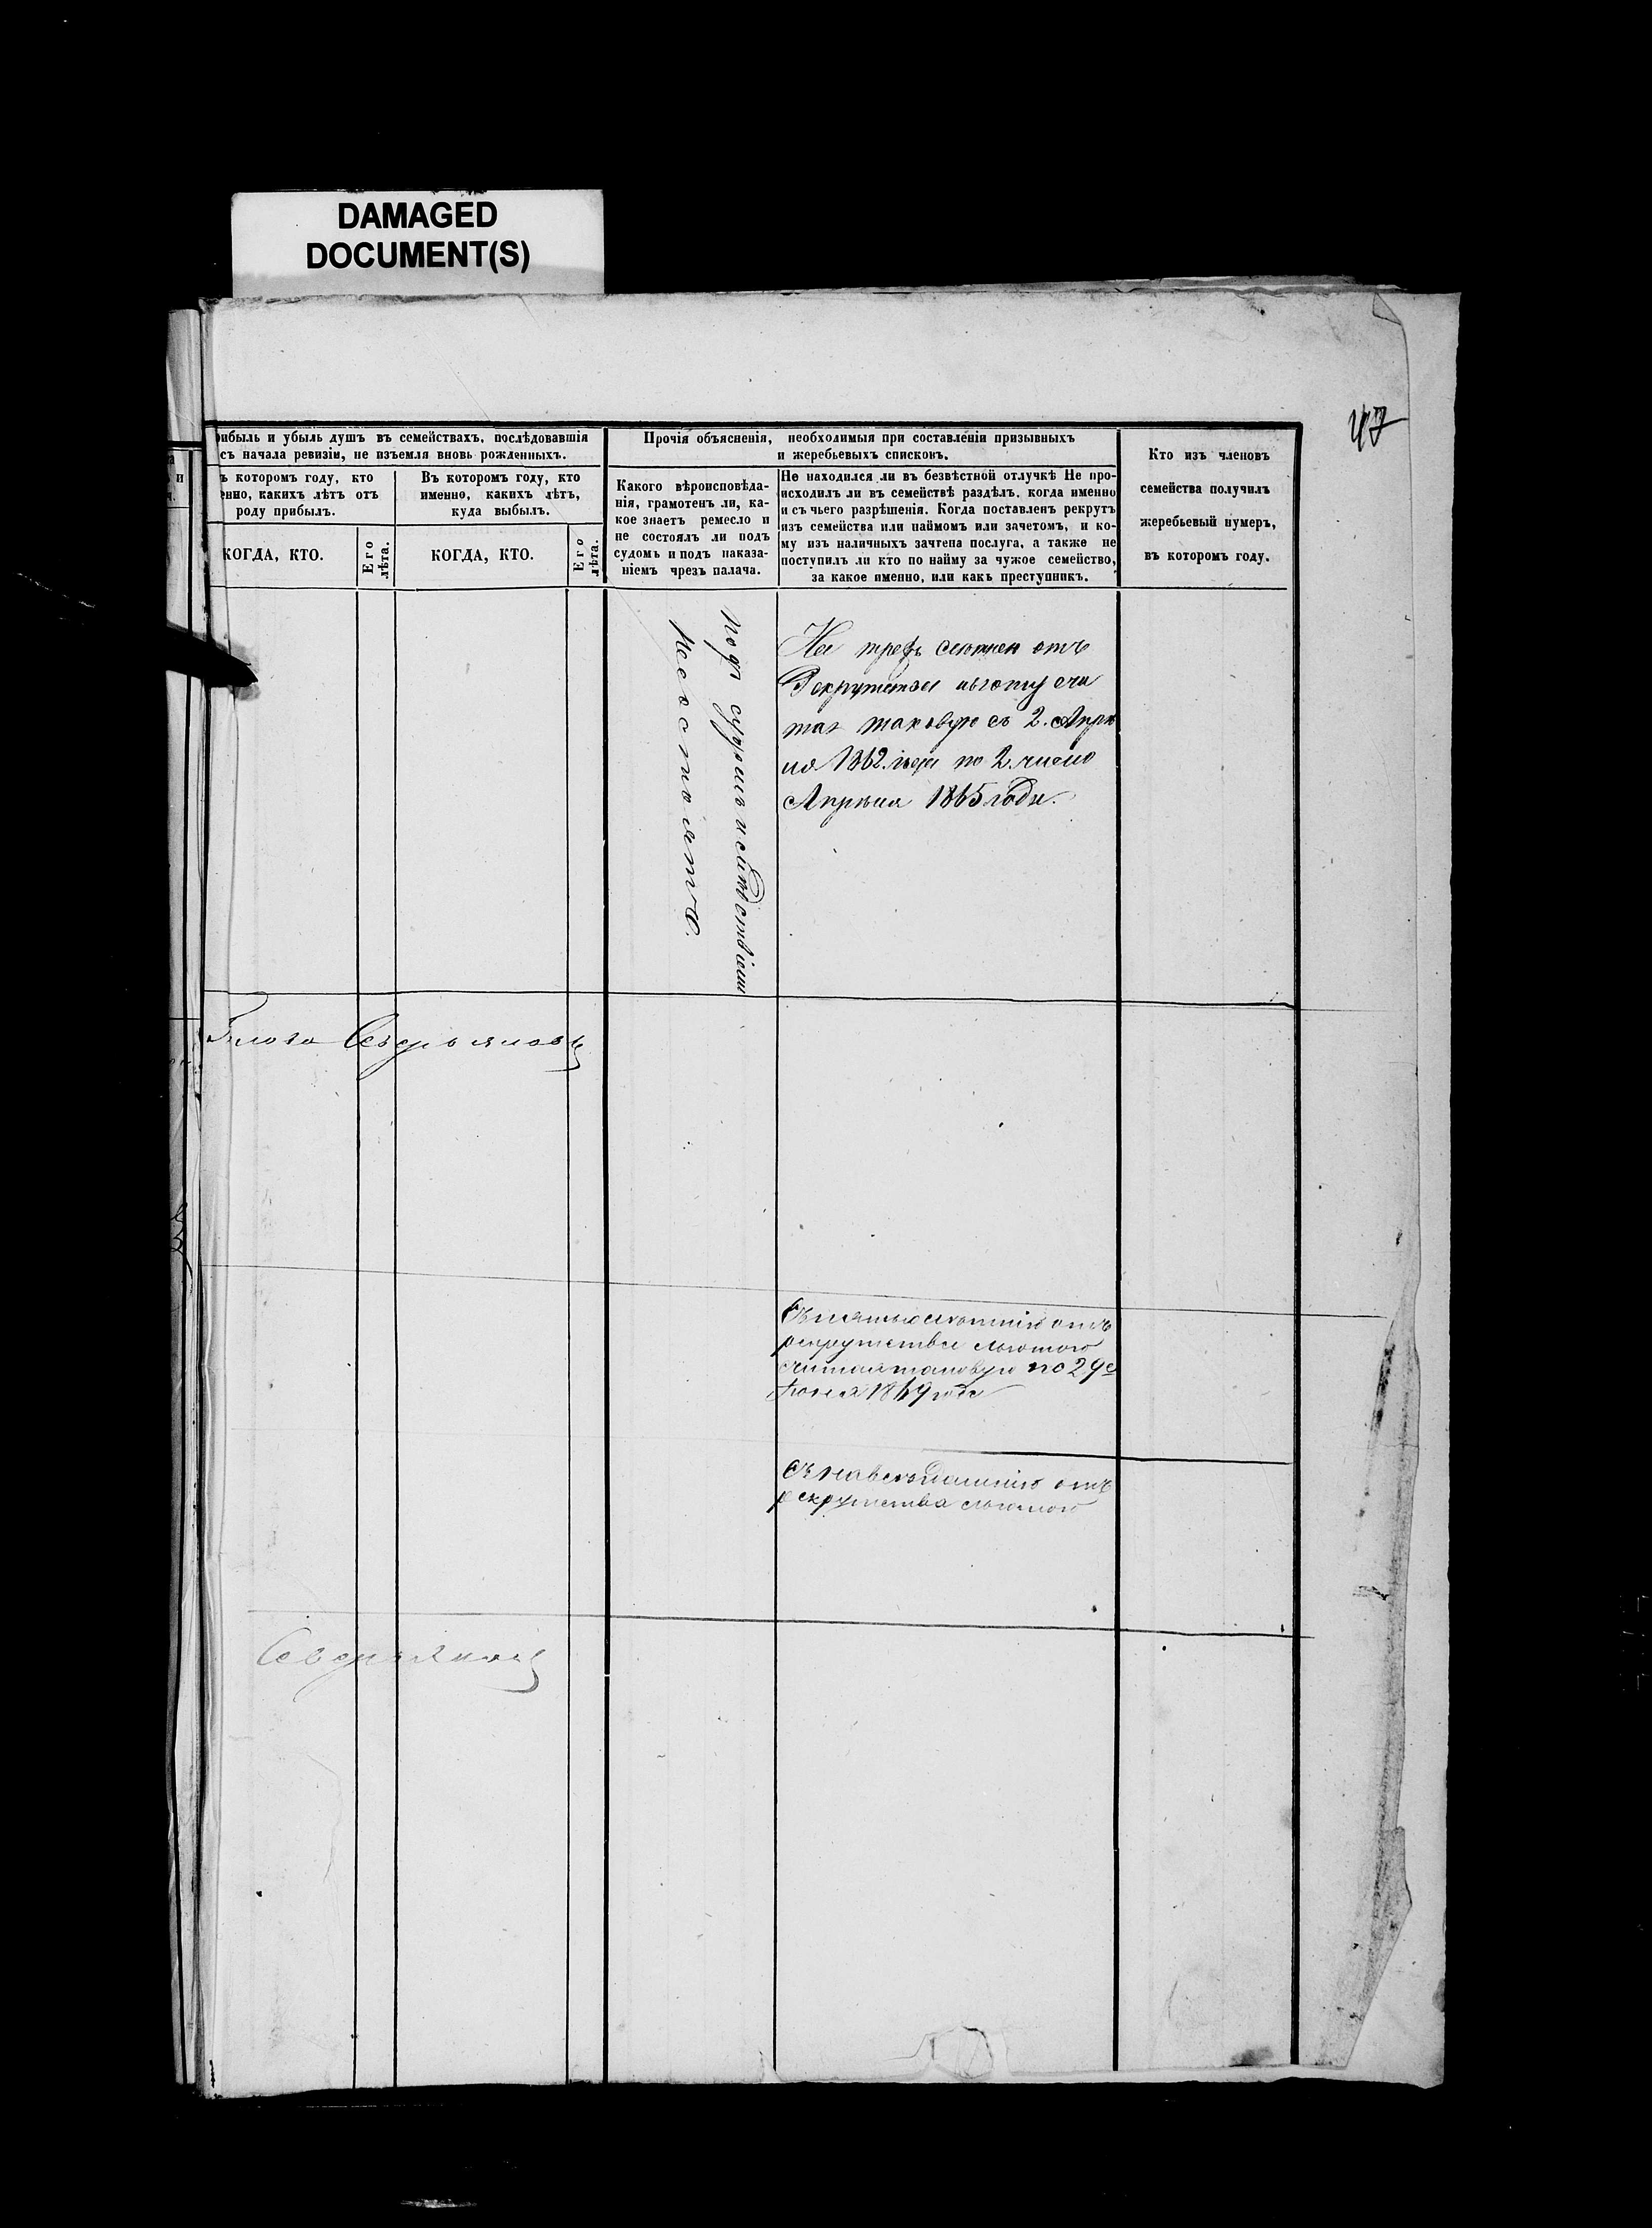 DAMAGED
DOCUMENT(S)
47
рибыль и убыль душъ въ семействахъ, послѣдовавшія
съ начала ревизіи, не изъемля вновь рожденныхъ.
ъ которомъ году, кто
енно, какихъ лѣтъ отъ
роду прибылъ.
Въ которомъ году, кто
именно, какихъ лѣтъ,
куда выбылъ.
КОГДА, КТО.
Его
лѣта.
КОГДА, КТО.
Его
лѣта.
Прочія объясненія, необходимыя при составленіи призывныхъ
и жеребьевыхъ списковъ.
Какого вѣроисповѣда-
нія, грамотенъ ли, ка-
кое знаетъ ремесло и
не состоялъ ли подъ
судомъ и подъ наказа-
ніемъ чрезъ палача.
Не находился ли въ безвѣстной отлучкѣ Не про-
исходилъ ли въ семействѣ раздѣлъ, когда именно
и съ чьего разрѣшенія. Когда поставленъ рекрутъ
изъ семейства или наймомъ или зачетомъ, и ко-
му изъ наличныхъ зачтена послуга, а также не
поступилъ ли кто по найму за чужое семейство,
за какое именно, или какъ преступникъ.
Кто изъ членовъ
семейства получилъ
жеребьевый нумеръ,
въ которомъ году.
подъ судомъ и слѣдствіемъ
несостоятъ.
На трехъ отъ
Рекрутства льготу счи
тая таковую съ 2. Апрѣ
ля 1862. года по 2. число
Апрѣля 1865 года.
Северьянов
отъ
рекрутства льготою
считая таковую по 29е
Іюня 1869 года
отъ
рекрутства льготою
Северьянов